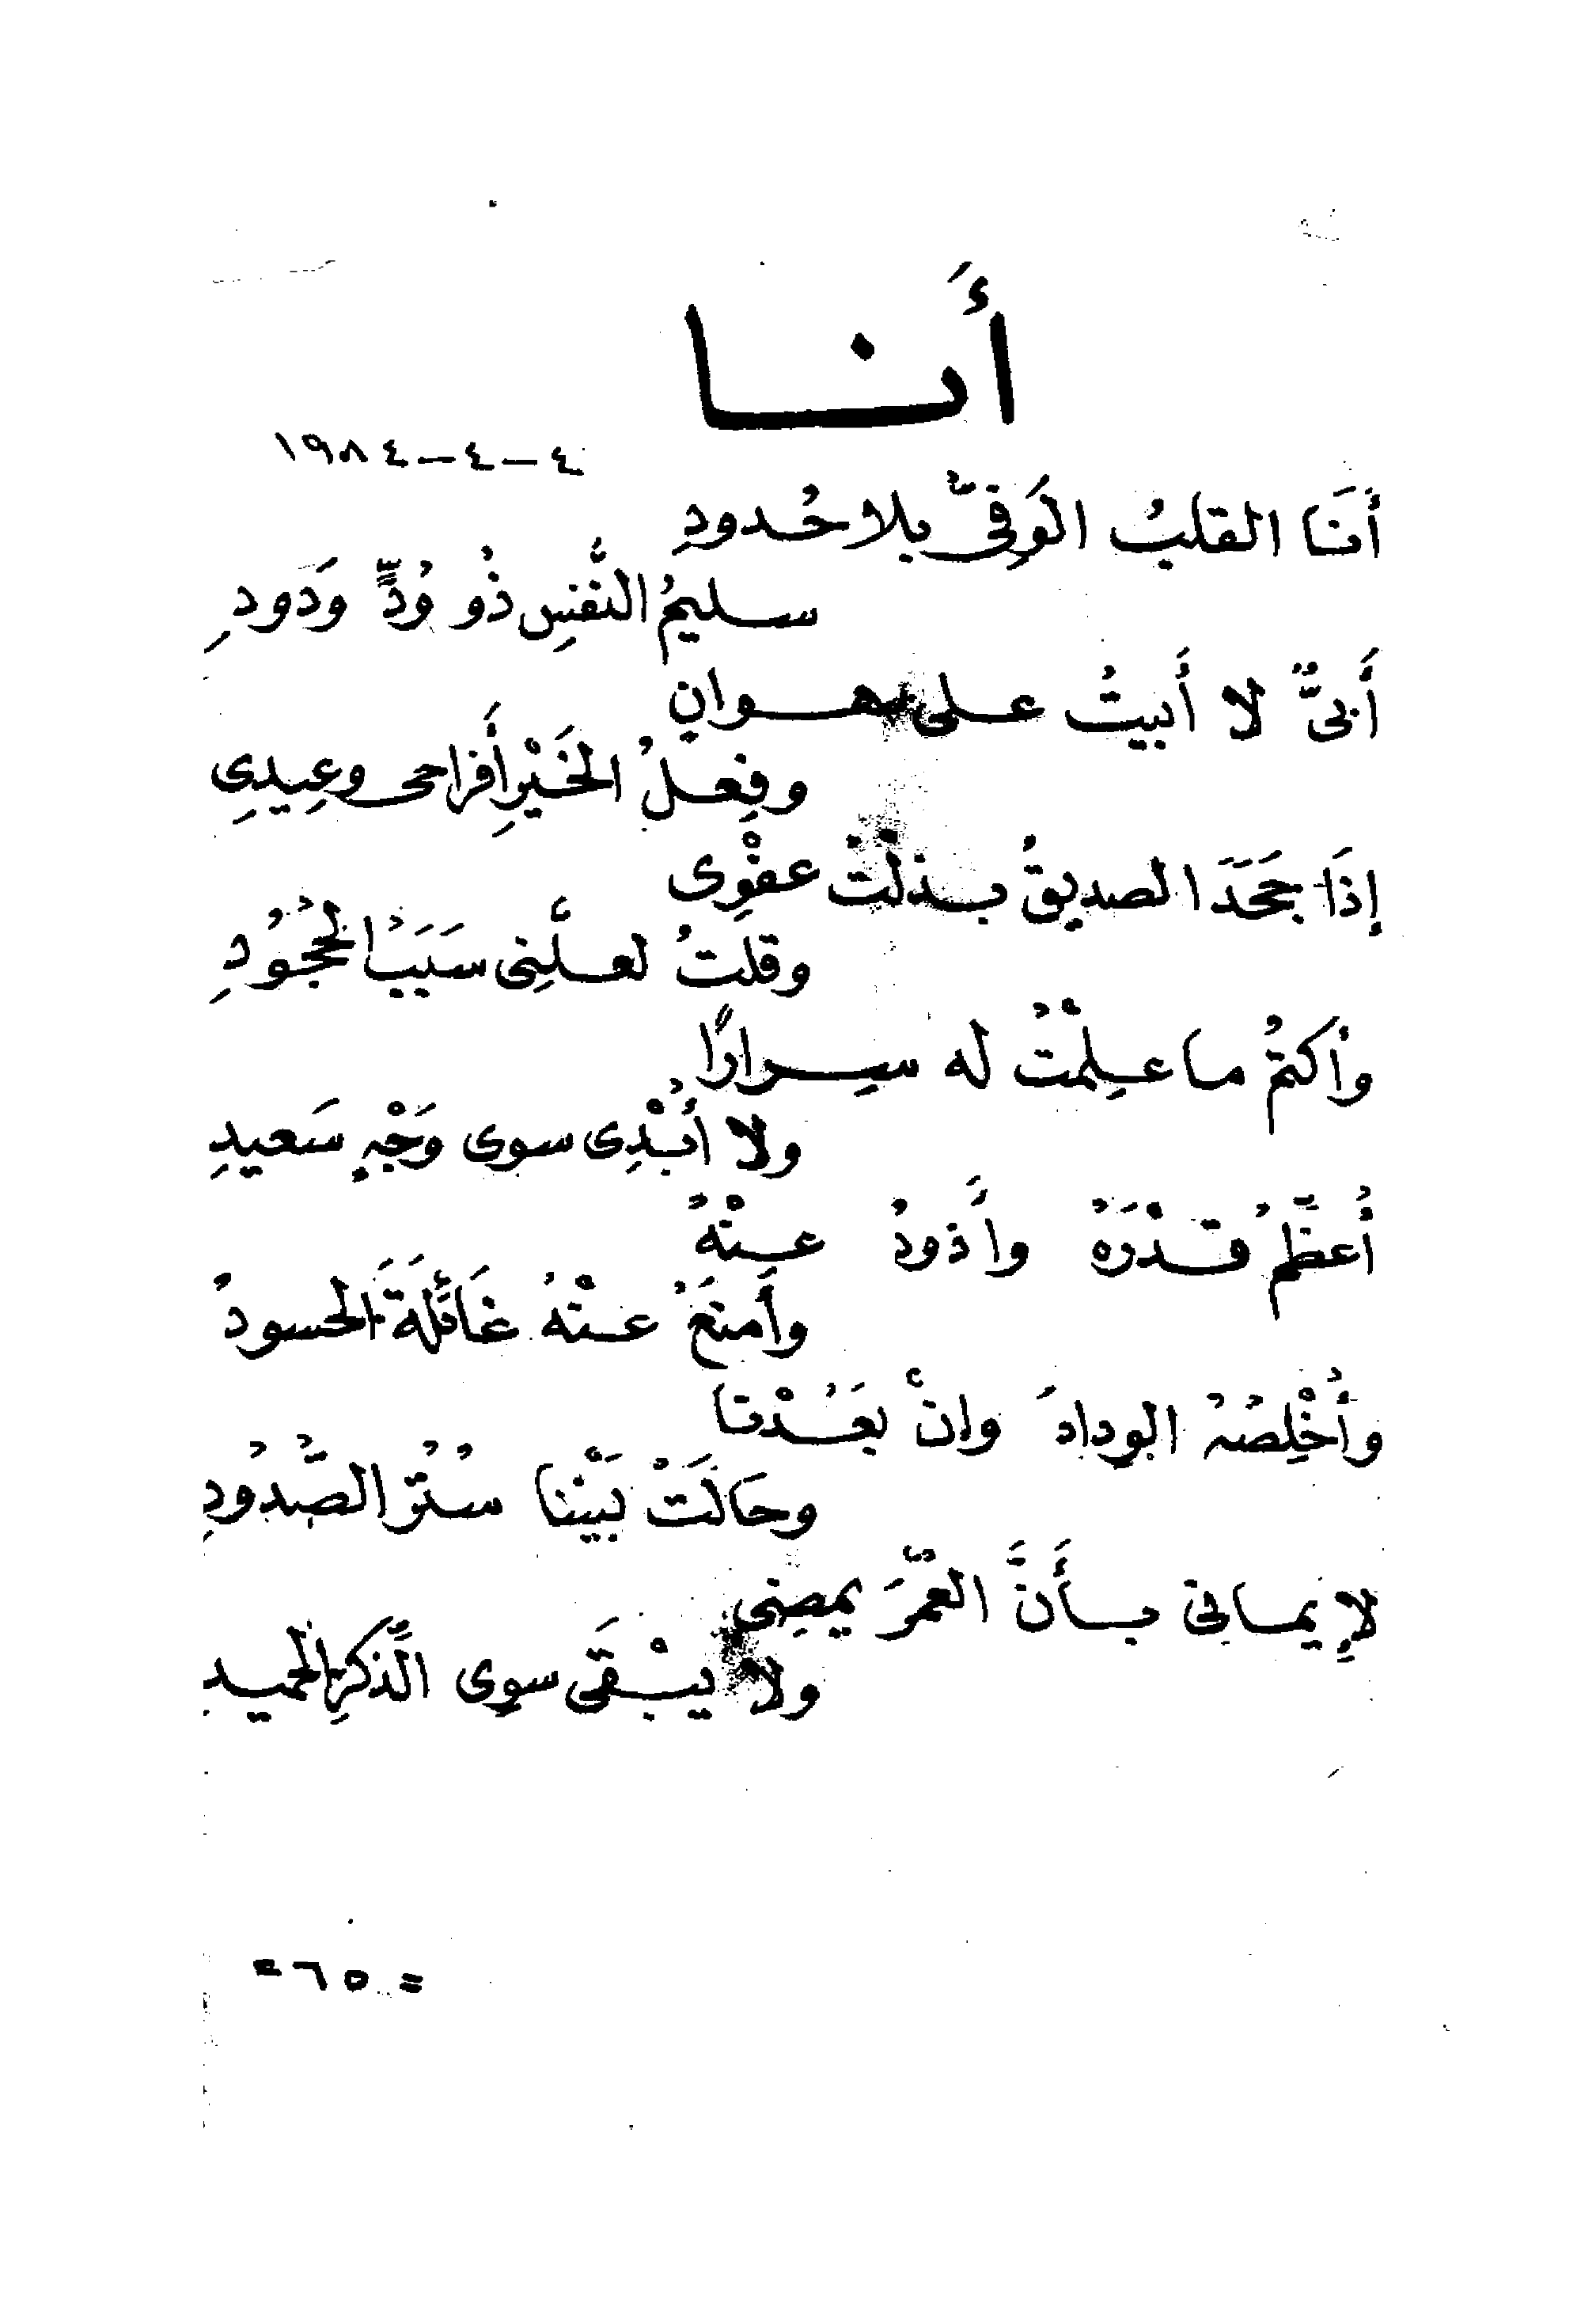 أَنا
٤-٤-١٩٨٤
أَنَا القلبُ الوَفِيُّ بلا حُدودِ
سليمُ النَّفسِ ذُو وُدٍّ وَدودِ
أَبىٌّ لا أَبيتُ على هوانٍ
وفِعلُ الخَيْرِ أَفراحى وعِيدِى
إذَا جَحَدَ الصديقُ بذلْتُ عفْوِى
وقلتُ لعلَّنِى سَبَبُ الجُحُودِ
وأكتمُ ما علِمْتُ له سِرارًا
ولا أُبْدِى سوى وَجْهٍ سَعيدِ
أُعظِّمُ قدْرَهُ وأَذودُ عنْهُ
وأَمنَعُ عنْهُ غَائلَةَ الحسودُ
وأُخْلِصُهُ الودادَ وإنْ بَعُدْنا
وحَالَتْ بَيْننا سُتُرُ الصُّدُودِ
لإيمانى بأَنَّ العُمْرَ يمضِى
ولا يبْقَى سوى الذِّكرِ الحميد
= ٦٥ =